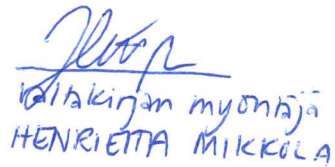 Valtakirjan myöntäjä
HENRIETTA MIKKOLA